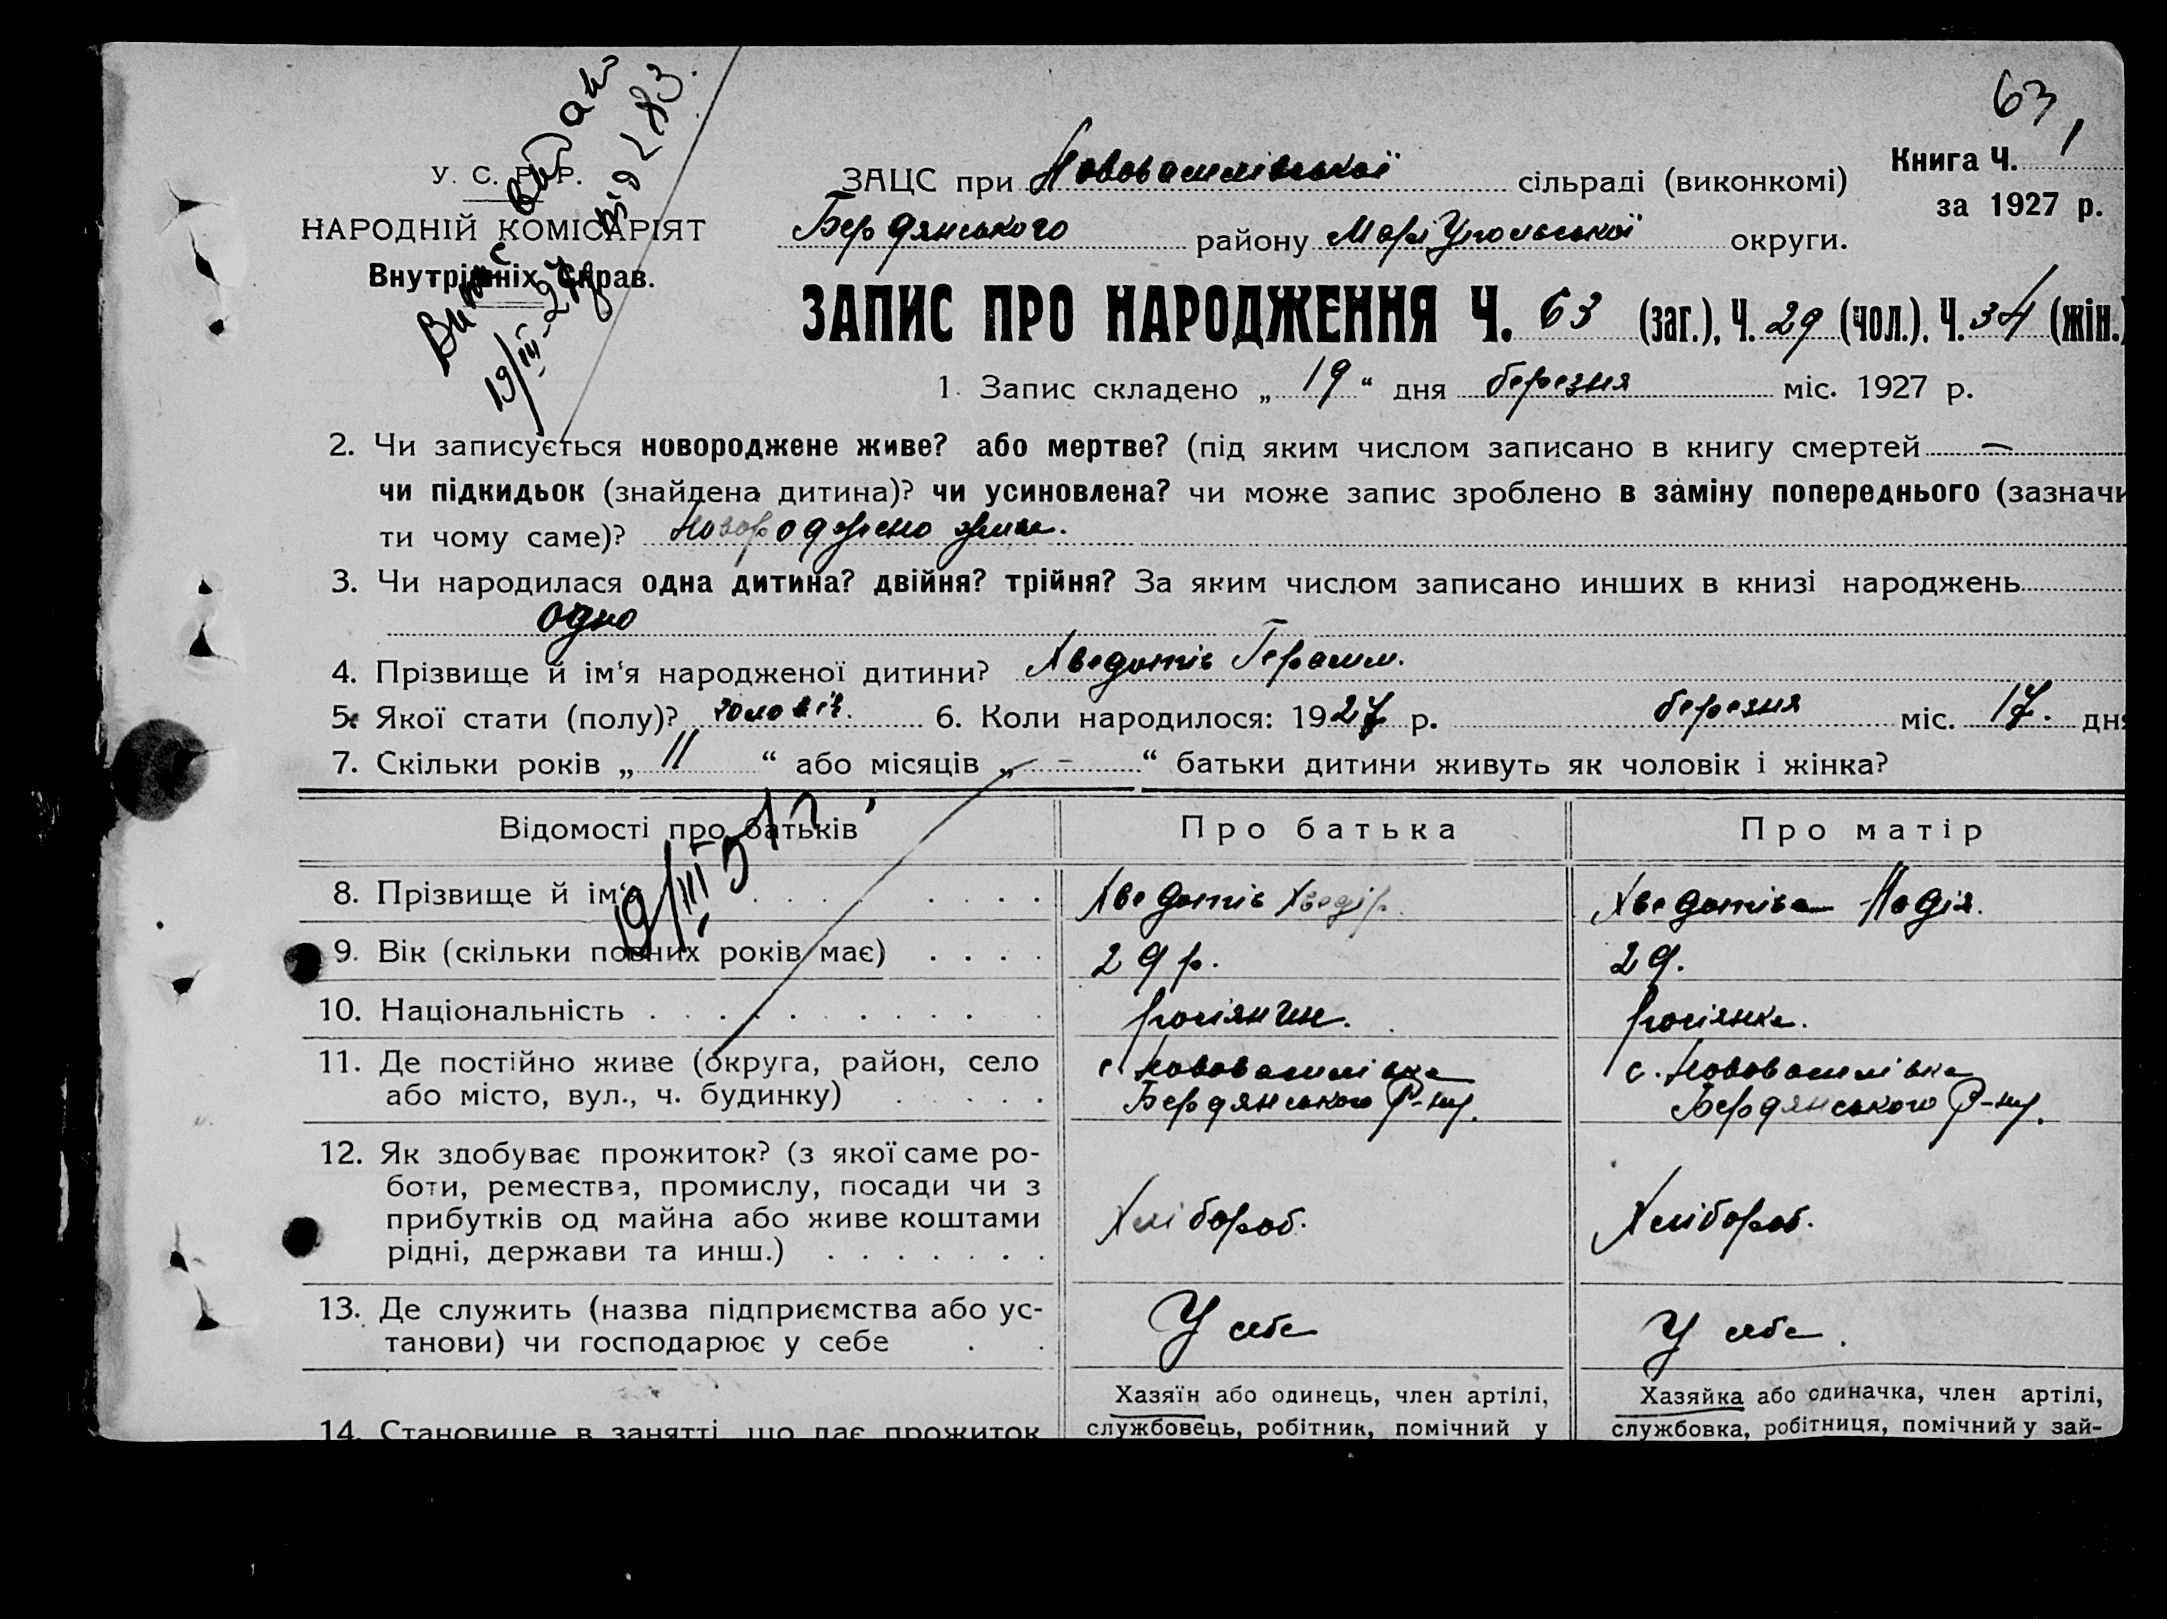 63
У. С. Р. Р.
НАРОДНІЙ КОМІСАРІЯТ
Внутрішніх Справ.
Витяг видані
19/III-27р. від 283.
ЗАЦС при Нововасилівської сільраді (виконкомі)
Книга Ч. 1
за 1927 р.
Бердянського району Маріупольської округи.
ЗАПИС ПРО НАРОДЖЕННЯ Ч. 63 (заг.), Ч. 29 (чол.), Ч. 34 (жін.)
1. Запис складено „ 19 “ дня березня міс. 1927 р.
2. Чи записується новороджене живе? або мертве? (під яким числом записано в книгу смертей —
чи підкидьок (знайдена дитина)? чи усиновлена? чи може запис зроблено в заміну попереднього (зазначи
ти чому саме)? Новороджено живе.
3. Чи народилася одна дитина? двійня? трійня? За яким числом записано инших в книзі народжень
одно
4. Прізвище й ім‘я народженої дитини? Хведотів Герасим.
5. Якої стати (полу)? чоловіч. 6. Коли народилося: 1927 р. березня міс. 17. дня
7. Скільки років „ 11 “ або місяців „ - “ батьки дитини живуть як чоловік і жінка?
Відомості про батьків Про батька Про матір
19/III 51
8. Прізвище й ім‘я Хведотів Хведір. Хведотіва Надія.
9. Вік (скільки повних років має) 29 р. 29.
10. Національність росіянин. росіянка.
11. Де постійно живе (округа, район, село с. Нововасилівка с. Нововасилівка
або місто, вул., ч. будинку) Бердянського Р-ну. Бердянського Р-ну.
12. Як здобуває прожиток? (з якої саме ро-
боти, ремества, промислу, посади чи з
прибутків од майна або живе коштами Хлібороб. Хлібороб.
рідні, держави та инш.)
13. Де служить (назва підприємства або ус- У себе У себе.
танови) чи господарює у себе
Хазяїн або одинець, член артілі, Хазяйка або одиначка, член артілі,
14. Становище в занятті, що дає прожиток службовець, робітник, помічний у службовка, робітниця, помічний у зай-